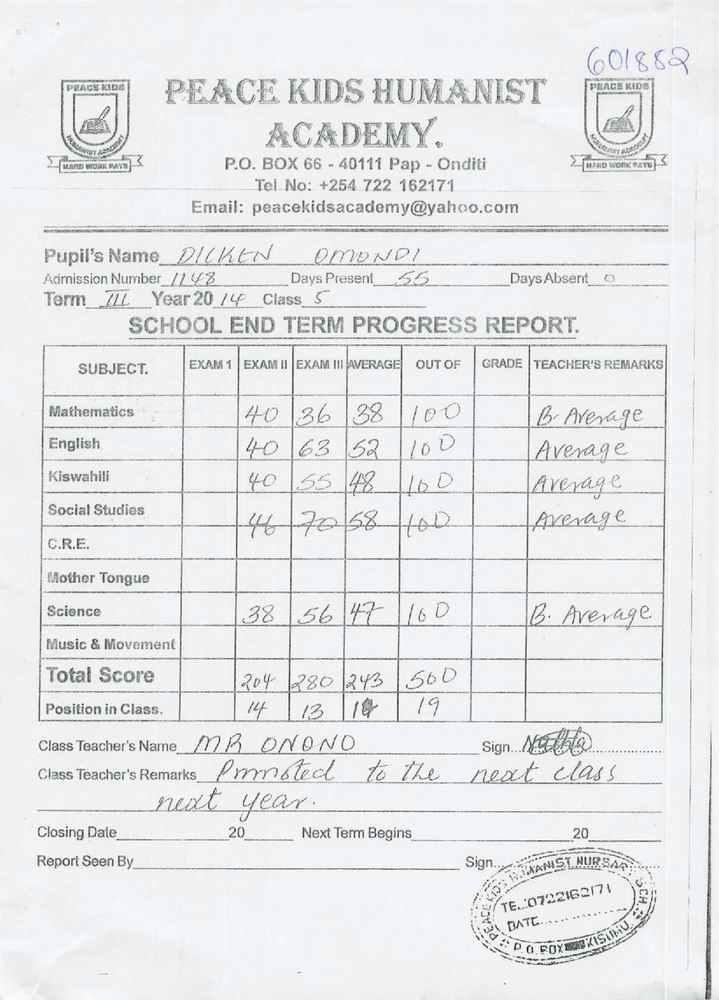 601882
PEACE KIDS
HUMANIST ACADEMY
HARD WORK PAYS
PEACE KIDS HUMANIST
ACADEMY.
PEACE KIDS
HUMANIST ACADEMY
HARD WORK PAYS
P.O. BOX 66 - 40111 Pap - Onditi
Tel No: +254 722 162171
Email: peacekidsacademy@yahoo.com
Pupil's Name DICKEN OMONDI
Admission Number 1148 Days Present 55 Days Absent 0
Term III Year 20 14 Class 5
SCHOOL END TERM PROGRESS REPORT.
SUBJECT. EXAM 1 EXAM II EXAM III AVERAGE OUT OF GRADE TEACHER'S REMARKS
Mathematics 40 36 38 100 B. Average
English 40 63 52 100 Average
Kiswahili 40 55 48 100 Average
Social Studies 46 70 58 100 Average
C.R.E.
Mother Tongue
Science 38 56 47 100 B. Average
Music & Movement
Total Score 204 280 243 500
Position in Class. 14 13 19
Class Teacher's Name MR ONONO Sign
Class Teacher's Remarks Prmmoted to the next class
next year.
Closing Date 20 Next Term Begins 20
Report Seen By Sign
PEACE KIDS HUMANIST NURSARY SCH.
TEL:0722162171
DATE
P.O. BOX KISUMU